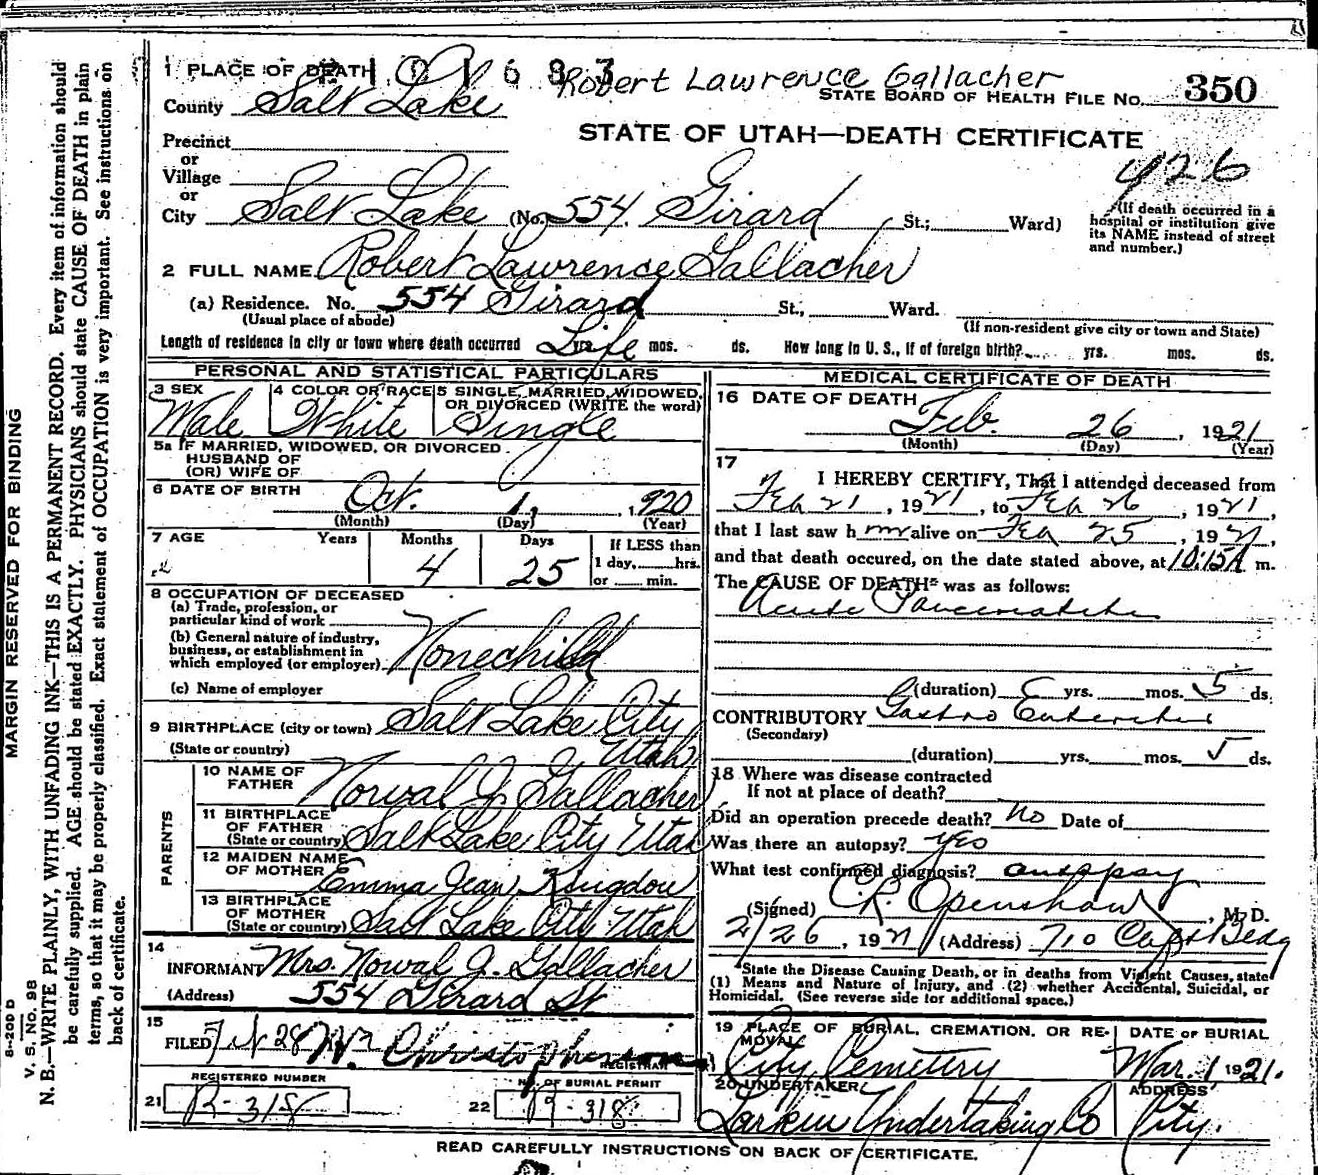 1 PLACE OF DEATH
Robert Lawrence Gallacher
County Salt Lake
STATE BOARD OF HEALTH FILE NO. 350
STATE OF UTAH—DEATH CERTIFICATE
426
Precinct
or
Village
or
City Salt Lake (No. 554 Girard St.; Ward)
(If death occurred in a
hospital or institution give
its NAME instead of street
and number.)
2 FULL NAME Robert Lawrence Gallacher
(a) Residence. No. 554 Girard St., Ward.
(Usual place of abode)
(If non-resident give city or town and State)
Length of residence in city or town where death occurred Life yrs. mos. ds. How long in U. S., if of foreign birth? yrs. mos. ds.
PERSONAL AND STATISTICAL PARTICULARS
3 SEX Male
4 COLOR OR RACE White
5 SINGLE, MARRIED, WIDOWED,
OR DIVORCED (WRITE the word)
Single
5a IF MARRIED, WIDOWED, OR DIVORCED
HUSBAND OF
(OR) WIFE OF
6 DATE OF BIRTH Oct. 1, 920
(Month) (Day) (Year)
7 AGE Years Months Days
4 25
If LESS than
1 day, hrs.
or min.
8 OCCUPATION OF DECEASED
(a) Trade, profession, or
particular kind of work
(b) General nature of industry,
business, or establishment in
which employed (or employer)
None child
(c) Name of employer
9 BIRTHPLACE (city or town) Salt Lake City
(State or country) Utah
PARENTS
10 NAME OF
FATHER Norval J. Gallacher
11 BIRTHPLACE
OF FATHER
(State or country) Salt Lake City Utah
12 MAIDEN NAME
OF MOTHER Emma Jean Kingdon
13 BIRTHPLACE
OF MOTHER
(State or country) Salt Lake City Utah
14
INFORMANT Mrs. Norval J. Gallacher
(Address) 554 Girard St
15
FILED 28 Christopherson
REGISTRAR
REGISTERED NUMBER
21 R-318
NO. OF BURIAL PERMIT
22 R-318
MEDICAL CERTIFICATE OF DEATH
16 DATE OF DEATH
Feb. 26, 1921
(Month) (Day) (Year)
17
I HEREBY CERTIFY, That I attended deceased from
Feb 21, 1921, to Feb 26, 1921,
that I last saw h im alive on Feb 25, 1921,
and that death occured, on the date stated above, at 10:15A m.
The CAUSE OF DEATH* was as follows:
Acute
(duration) yrs. mos. 5 ds.
CONTRIBUTORY Gastro Enteritis
(Secondary)
(duration) yrs. mos. 5 ds.
18 Where was disease contracted
If not at place of death?
Did an operation precede death? No Date of
Was there an autopsy? yes
What test confirmed diagnosis? autopsy
(Signed) C.R. Openshaw, M. D.
2/26, 1921 (Address) 710 Bldg
*State the Disease Causing Death, or in deaths from Violent Causes, state
(1) Means and Nature of Injury, and (2) whether Accidental, Suicidal, or
Homicidal. (See reverse side for additional space.)
19 PLACE OF BURIAL, CREMATION, OR RE-
MOVAL
City Cemetery
DATE OF BURIAL
Mar. 1 1921.
20 UNDERTAKER
Larkin Undertaking Co
ADDRESS
City.
READ CAREFULLY INSTRUCTIONS ON BACK OF CERTIFICATE.
MARGIN RESERVED FOR BINDING
N. B.—WRITE PLAINLY, WITH UNFADING INK—THIS IS A PERMANENT RECORD. Every item of information should
be carefully supplied. AGE should be stated EXACTLY. PHYSICIANS should state CAUSE OF DEATH in plain
terms, so that it may be properly classified. Exact statement of OCCUPATION is very important. See instructions on
back of certificate.
V. S. No. 98
8-20D D